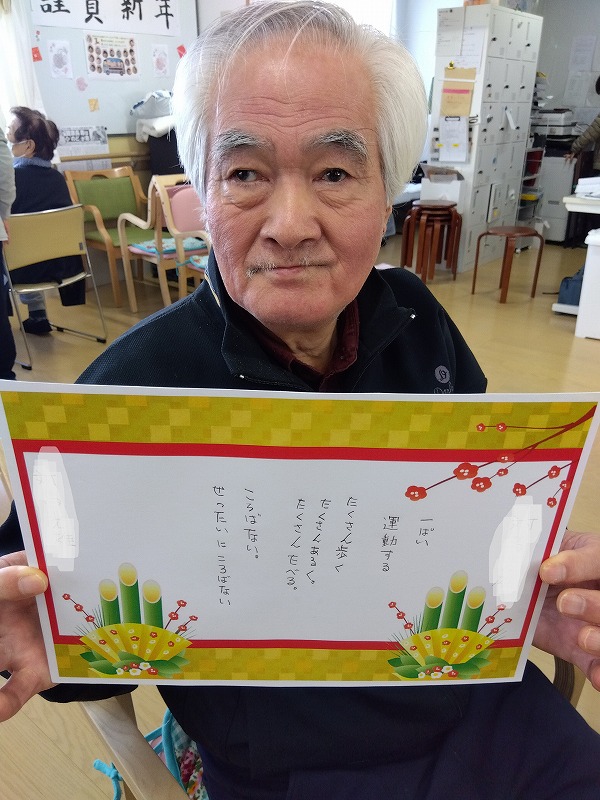 謹賀新年
一ぱい
運動する
たくさん歩く
たくさんあるく。
たくさんたべる。
ころばない。
ぜったいにころばない